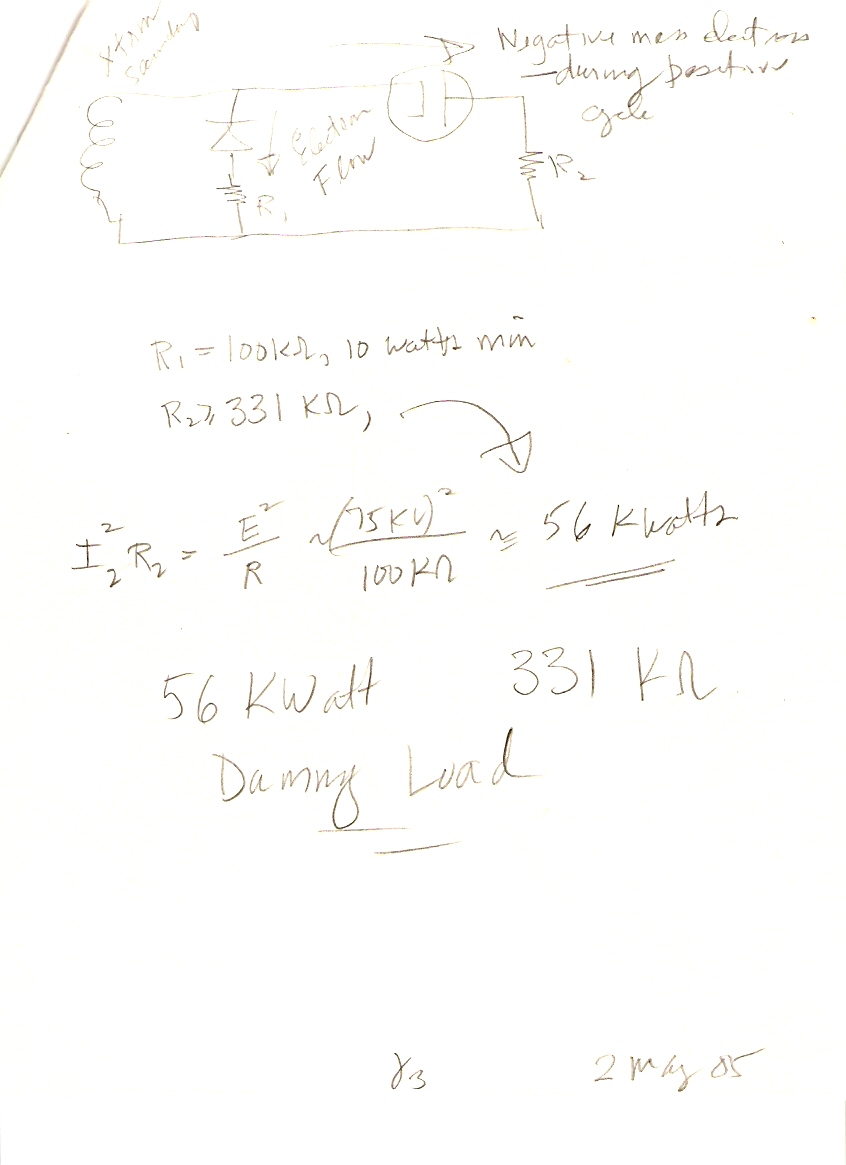 Xfrm
Secondary
Negative mass electrons
—during positive
cycle
Electron
Flow
R₁
R₂
R₁ = 100KΩ, 10 watts min
R₂ ≥ 331 KΩ,
I₂² R₂ = E²/R ~ (75KV)²/100KΩ ≈ 56 Kwatts
56 KWatt 331 KΩ
Dammy Load
γ3 2 May 05